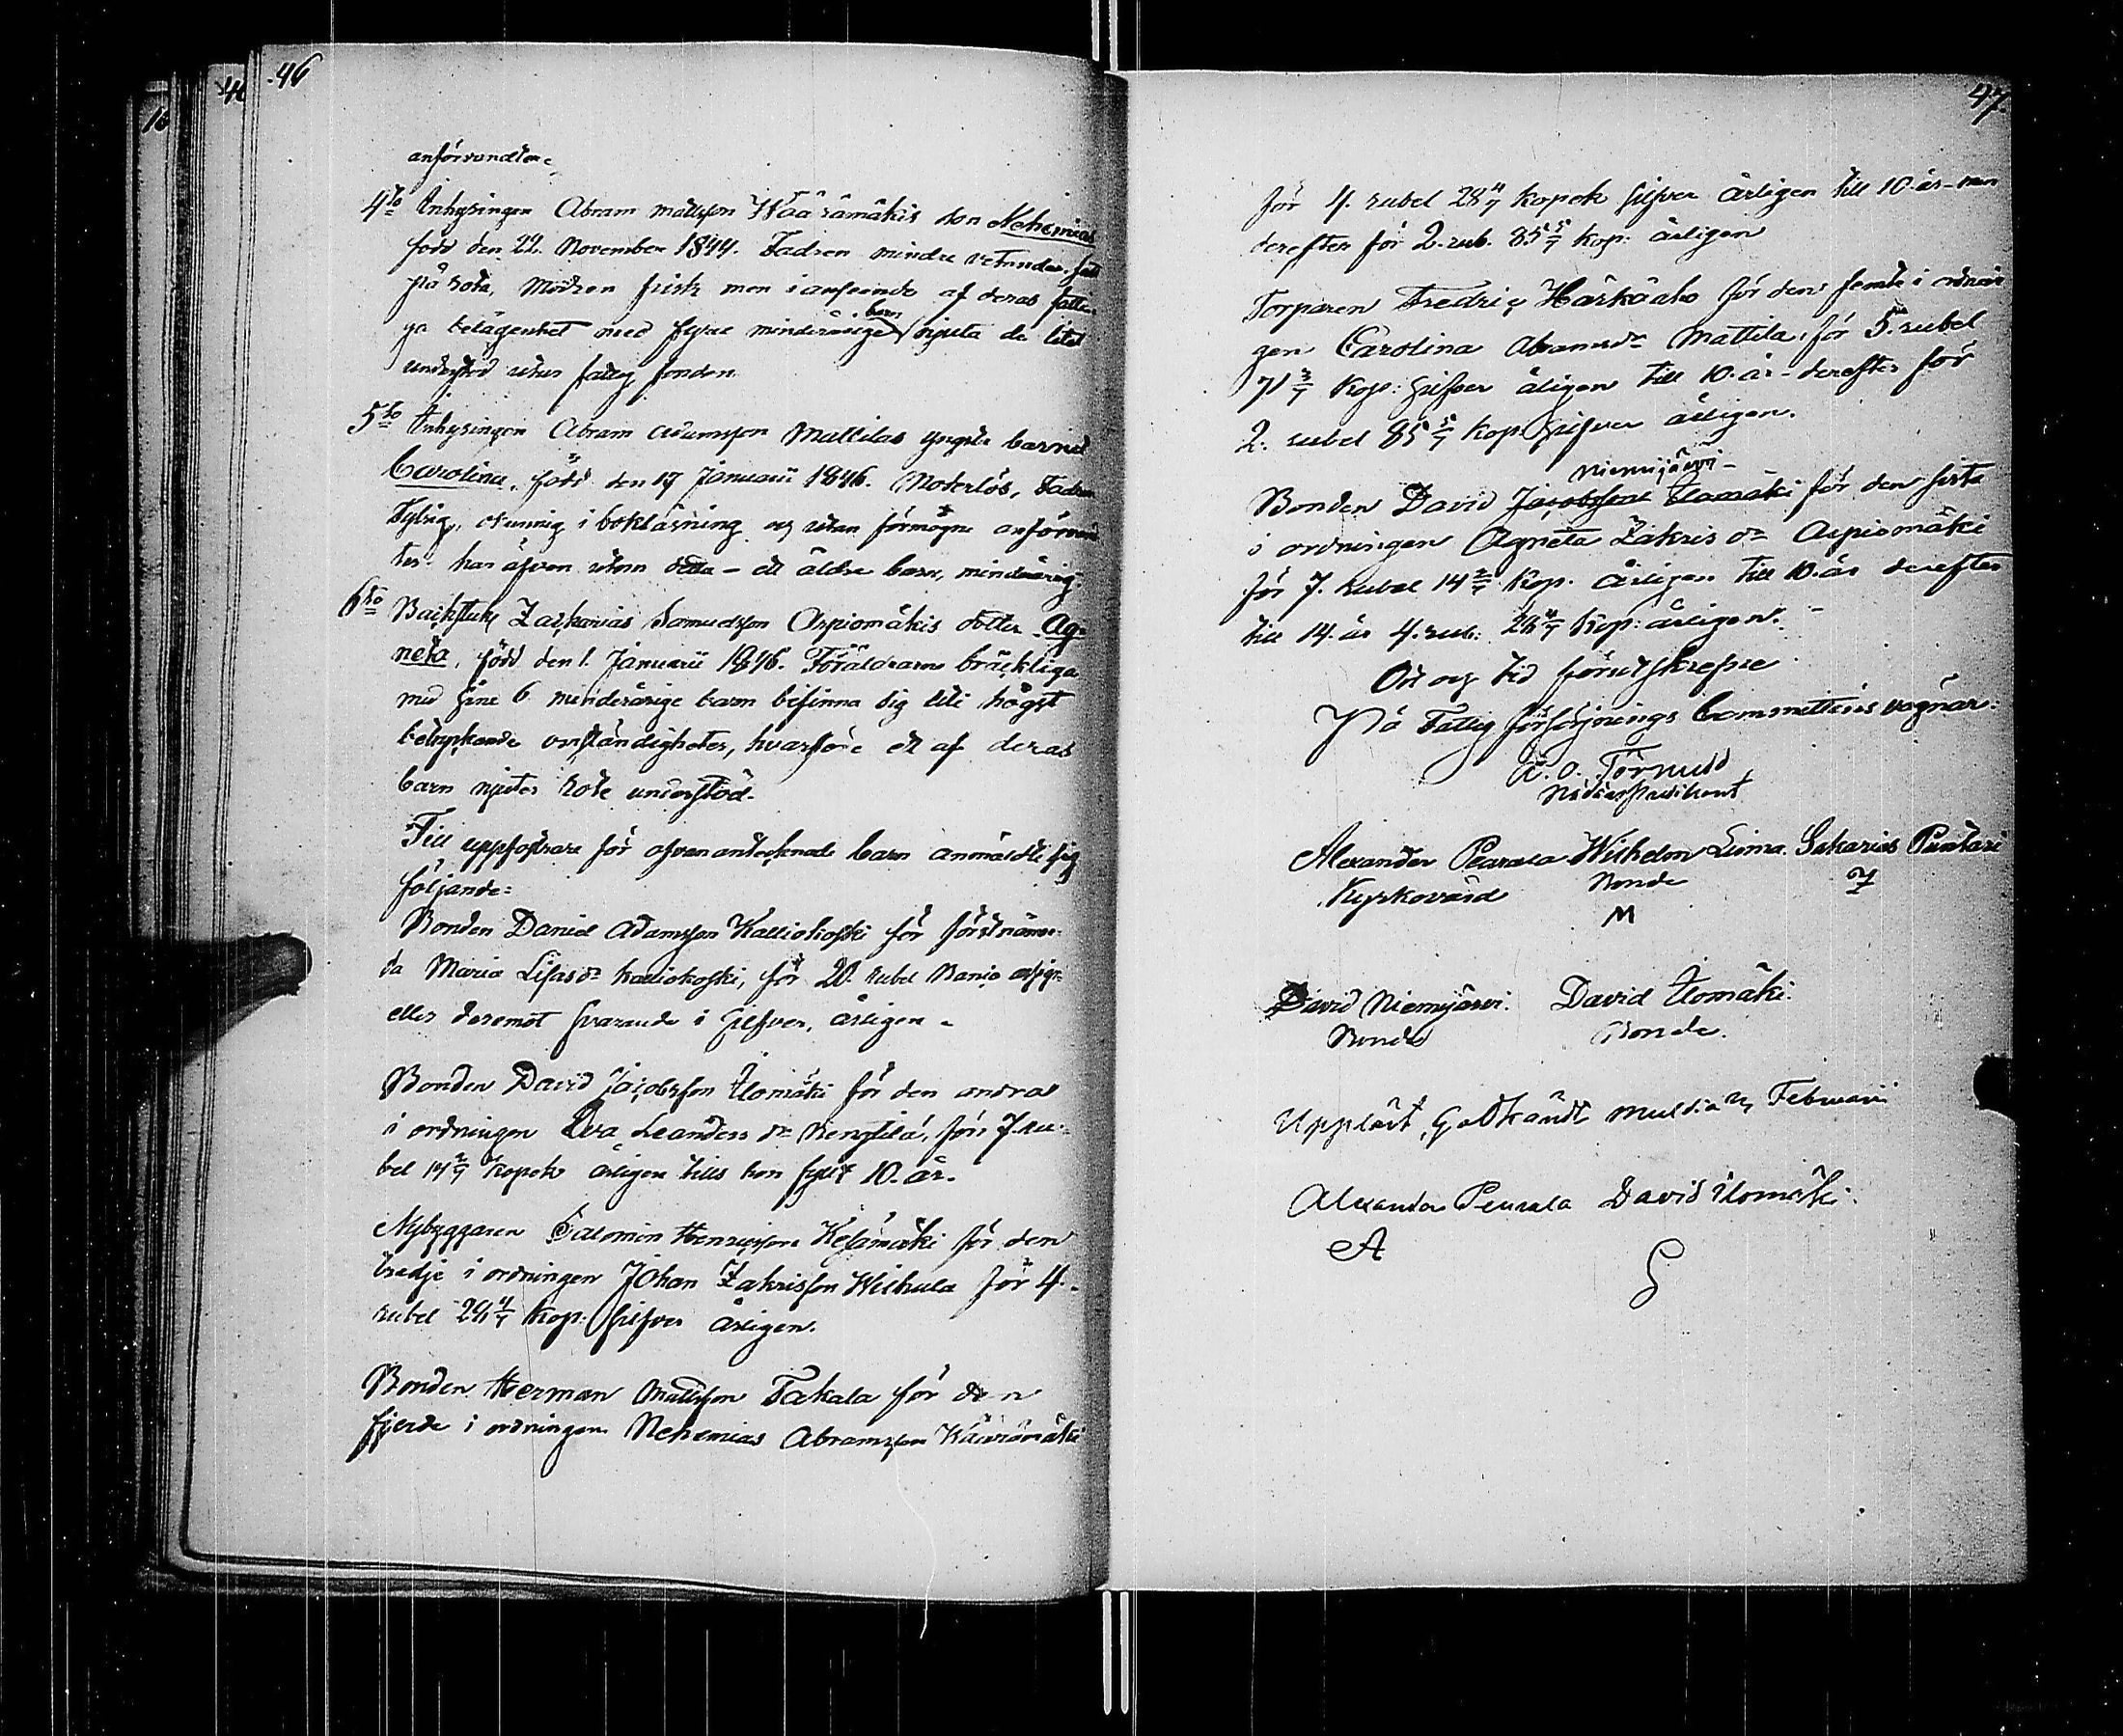 46
anförvandter.
4to Inhysingen Abram Mattsson Wäärämäkis son Nehemias
född den 22. November 1844. Fadren mindre vetande, satt
på rota, Modren frisk men i anseende af deras fatti-
ga belägenhet med flyra minderårige barn njuta de litet
understöd utur fattig fonden
5to Inhysingen Abram Adamsson Mattilas yngsta barnet
Carolina, född den 17 Januarii 1846. Moderlös, Fadren
sytlig, okunnig i bokläsning och utan förmögne anförvand
ter. har äfven utom detta - ett äldre barn, minderårig.
6to Backstuk: Zackarias Samuelsson Arpiomäkis dotter Ag-
neta, född den 1. Januarii 1846. Föräldrarne bräckliga
med sine 6 minderårige barn befinna sig uti högst
betryckande omständigheter, hvarföre ett af deras
barn njuter rote understöd.
Till uppfostrare för ofvanantecknade barn anmäldte sig
följande:
Bonden Daniel Adamsson Kalliokoski för förstnämn-
da Maria Lisasdr Kalliokoski, för 20. rubel Banco assign:
eller deremot svarande i Silfver, årligen.
Bonden David Jacobsson Ilomäki för den andra
i ordningen Eva Leandersdr Kengtilä, för 7. ru-
bel 14 2/7 kopek årligen tills hon fyllt 10. år.
Nybyggaren Salomon Henricsson Kesämäki för den
tredje i ordningen Johan Zakrisson Wilkula för 4.
rubel 28 4/7 kop: Silfver årligen.
Bonden Herman Mattsson Takala för den
fjerde i ordningen Nehemias Abramsson Wäärämäki
47
för 4. rubel 28 4/7 kopek silfver årligen till 10. år - men
derefter för 2. rub. 85 5/7 kop: årligen
Torparen Fredric Härkäaho för den femte i ordnin
gen Carolina Abramsdr Mattila, för 5. rubel
71 3/7 kop: silfver åligen till 10. år - derefter för
2. rubel 85 5/7 kop: Silfver årligen.
Niemijärvi
Bonden David Jacobsson Ilomäki för den sista
i ordningen Agneta Zakrisdr Arpiomäki
för 7. Rubel 14 2/7 kop. årligen till 10. år derefter
till 14. år 4. rub: 28 4/7 kop: årligen.
Ort och tid förutskrefne
På Fattig försörjnings Committéns vägnar:
A. O. Törnudd
Nådårspredikant
Alexander Peurala Wilhelm Luoma Sakarias Puntari
Kyrkovärd Bonde
M
David Niemijärvi. David Ilomäki.
Bonde Bonde.
Uppläst, Godkändt Februarii
Alexander Peurala David Ilomäki.
A